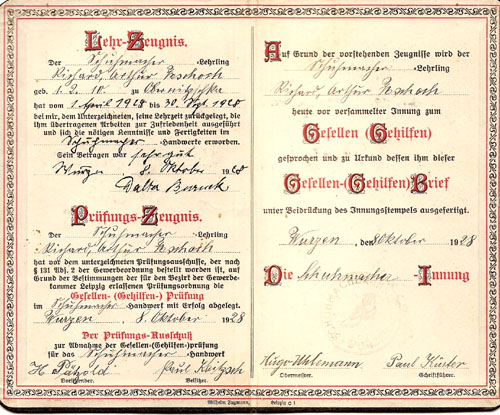 Lehr-Zeugnis.
Der Schuhmacher-Lehrling
Richard Arthur
geb. 1. 2. 10. zu
hat vom 1 April 1928 bis 30. Sept. 1928
bei mir, dem Unterzeichneten, seine Lehrzeit zurückgelegt, die
ihm übertragenen Arbeiten zur Zufriedenheit ausgeführt
und sich die nötigen Kenntnisse und Fertigkeiten im
Schuhmacher-Handwerke erworben.
Sein Betragen war sehr gut
Wurzen, 8. Oktober 1928
Prüfungs-Zeugnis.
Der Schuhmacher-Lehrling
Richard Arthur
hat vor dem unterzeichneten Prüfungsausschusse, der nach
§ 131 Abs. 2 der Gewerbeordnung bestellt worden ist, auf
Grund der Bestimmungen der für den Bezirk der Gewerbe-
kammer Leipzig erlassenen Prüfungsordnung die
Gesellen- (Gehilfen-) Prüfung
im Schuhmacher-Handwerk mit Erfolg abgelegt.
Wurzen, 8. Oktober 1928
Der Prüfungs-Ausschuß
zur Abnahme der Gesellen-(Gehilfen-)prüfung
für das Schuhmacher-Handwerk
Paul
Vorsitzender. Beisitzer.
Auf Grund der vorstehenden Zeugnisse wird der
Schuhmacher-Lehrling
Richard Arthur
heute vor versammelter Innung zum
Gesellen (Gehilfen)
gesprochen und zu Urkund dessen ihm dieser
Gesellen-(Gehilfen)Brief
unter Beidrückung des Innungsstempels ausgefertigt.
Wurzen, den 8 Oktober 1928
Die Schuhmacher-Innung
Hugo Paul
Obermeister. Schriftführer.
Leipzig